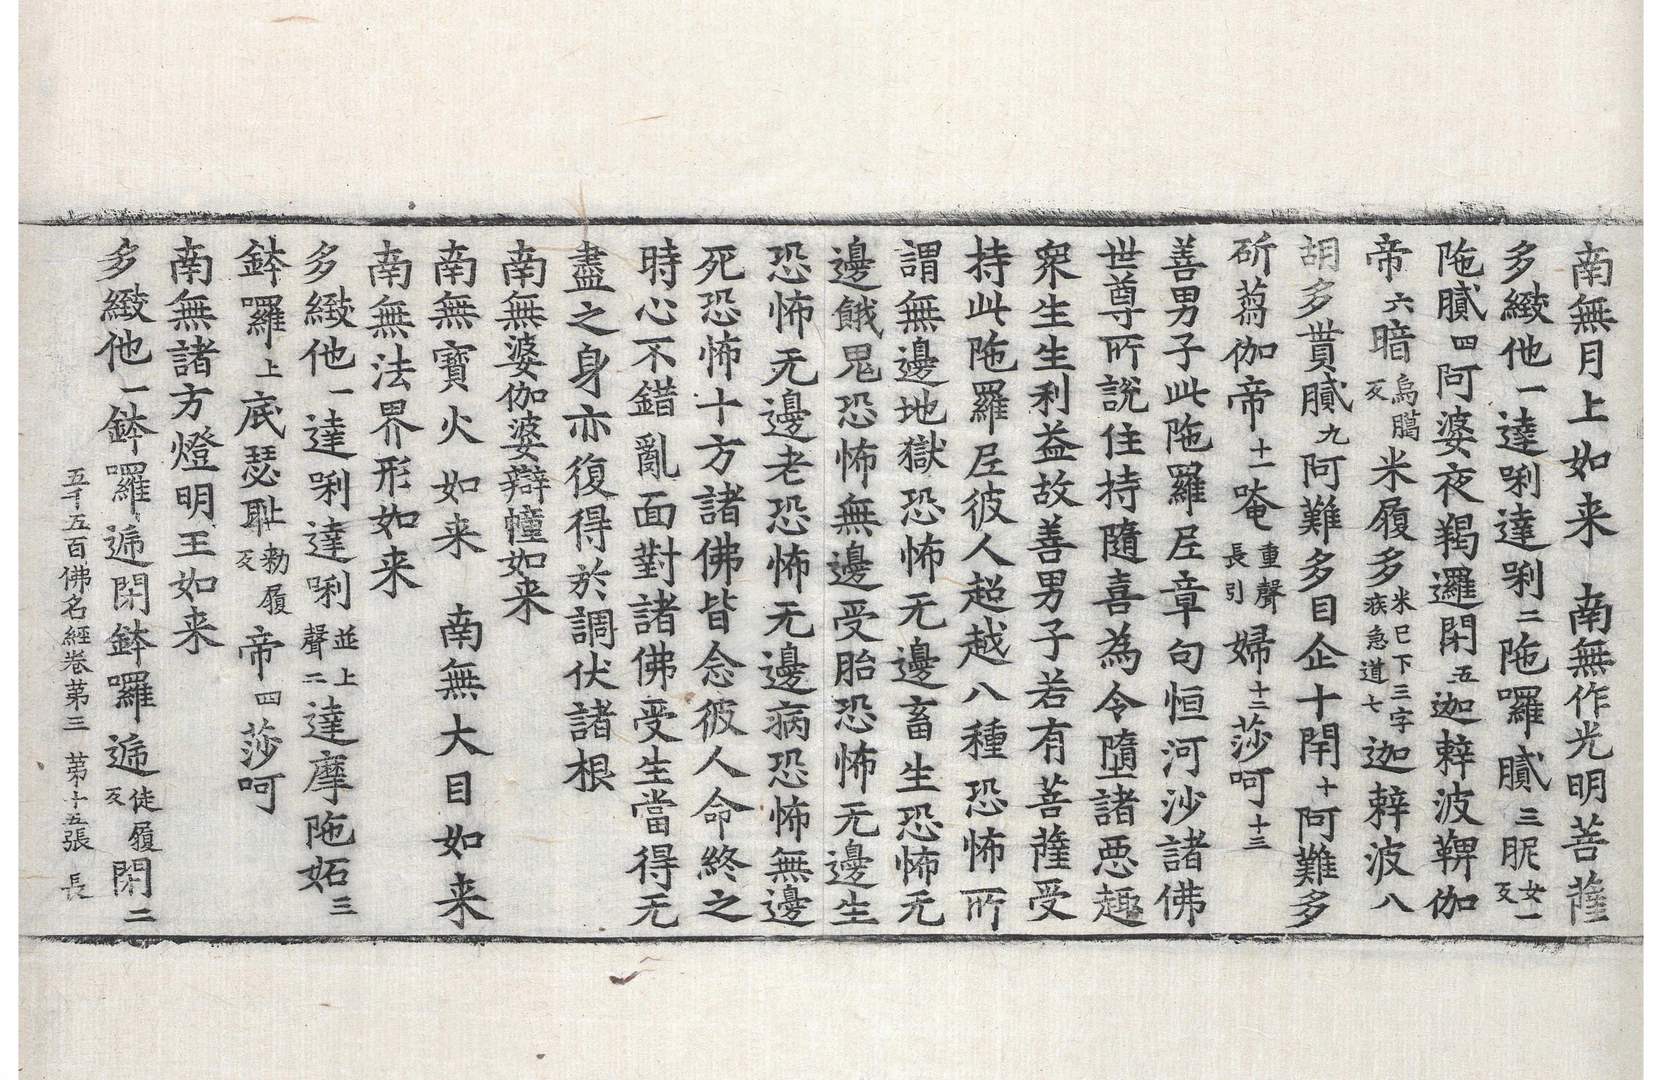 南無月上如来　南無作光明菩薩
多緻他一達唎達唎二陁囉膩三昵女一反
陁膩四阿婆夜羯邏閇五迦𨐌波鞞伽
帝六暗烏𦡳反米履多米巳下三字疾急道七迦𨐌波八
胡多貰膩九阿難多目企十閇十阿難多
斫蒭伽帝十一唵重聲長引婦十二莎呵十三
善男子此陁羅尼章句恒河沙諸佛
世尊所說住持隨喜為令墮諸惡趣
衆生生利益故善男子若有菩薩受
持此陁羅尼彼人超越八種恐怖所
謂無邊地獄恐怖无邊畜生恐怖无
邊餓鬼恐怖無邊受胎恐怖无邊生
恐怖无邊老恐怖无邊病恐怖無邊
死恐怖十方諸佛皆念彼人命終之
時心不錯亂面對諸佛受生當得无
盡之身亦復得於調伏諸根
南無婆伽婆辯幢如来
南無寶火如来　南無大目如来
南無法界形如来
多緻他一達唎達唎並上聲二達摩陁妬三
鉢囉上底瑟耻勑履反帝四莎呵
南無諸方燈明王如来
多緻他一鉢囉遞閇鉢囉遞徒履反閇二
五千五百佛名經卷第三　第十五張　長